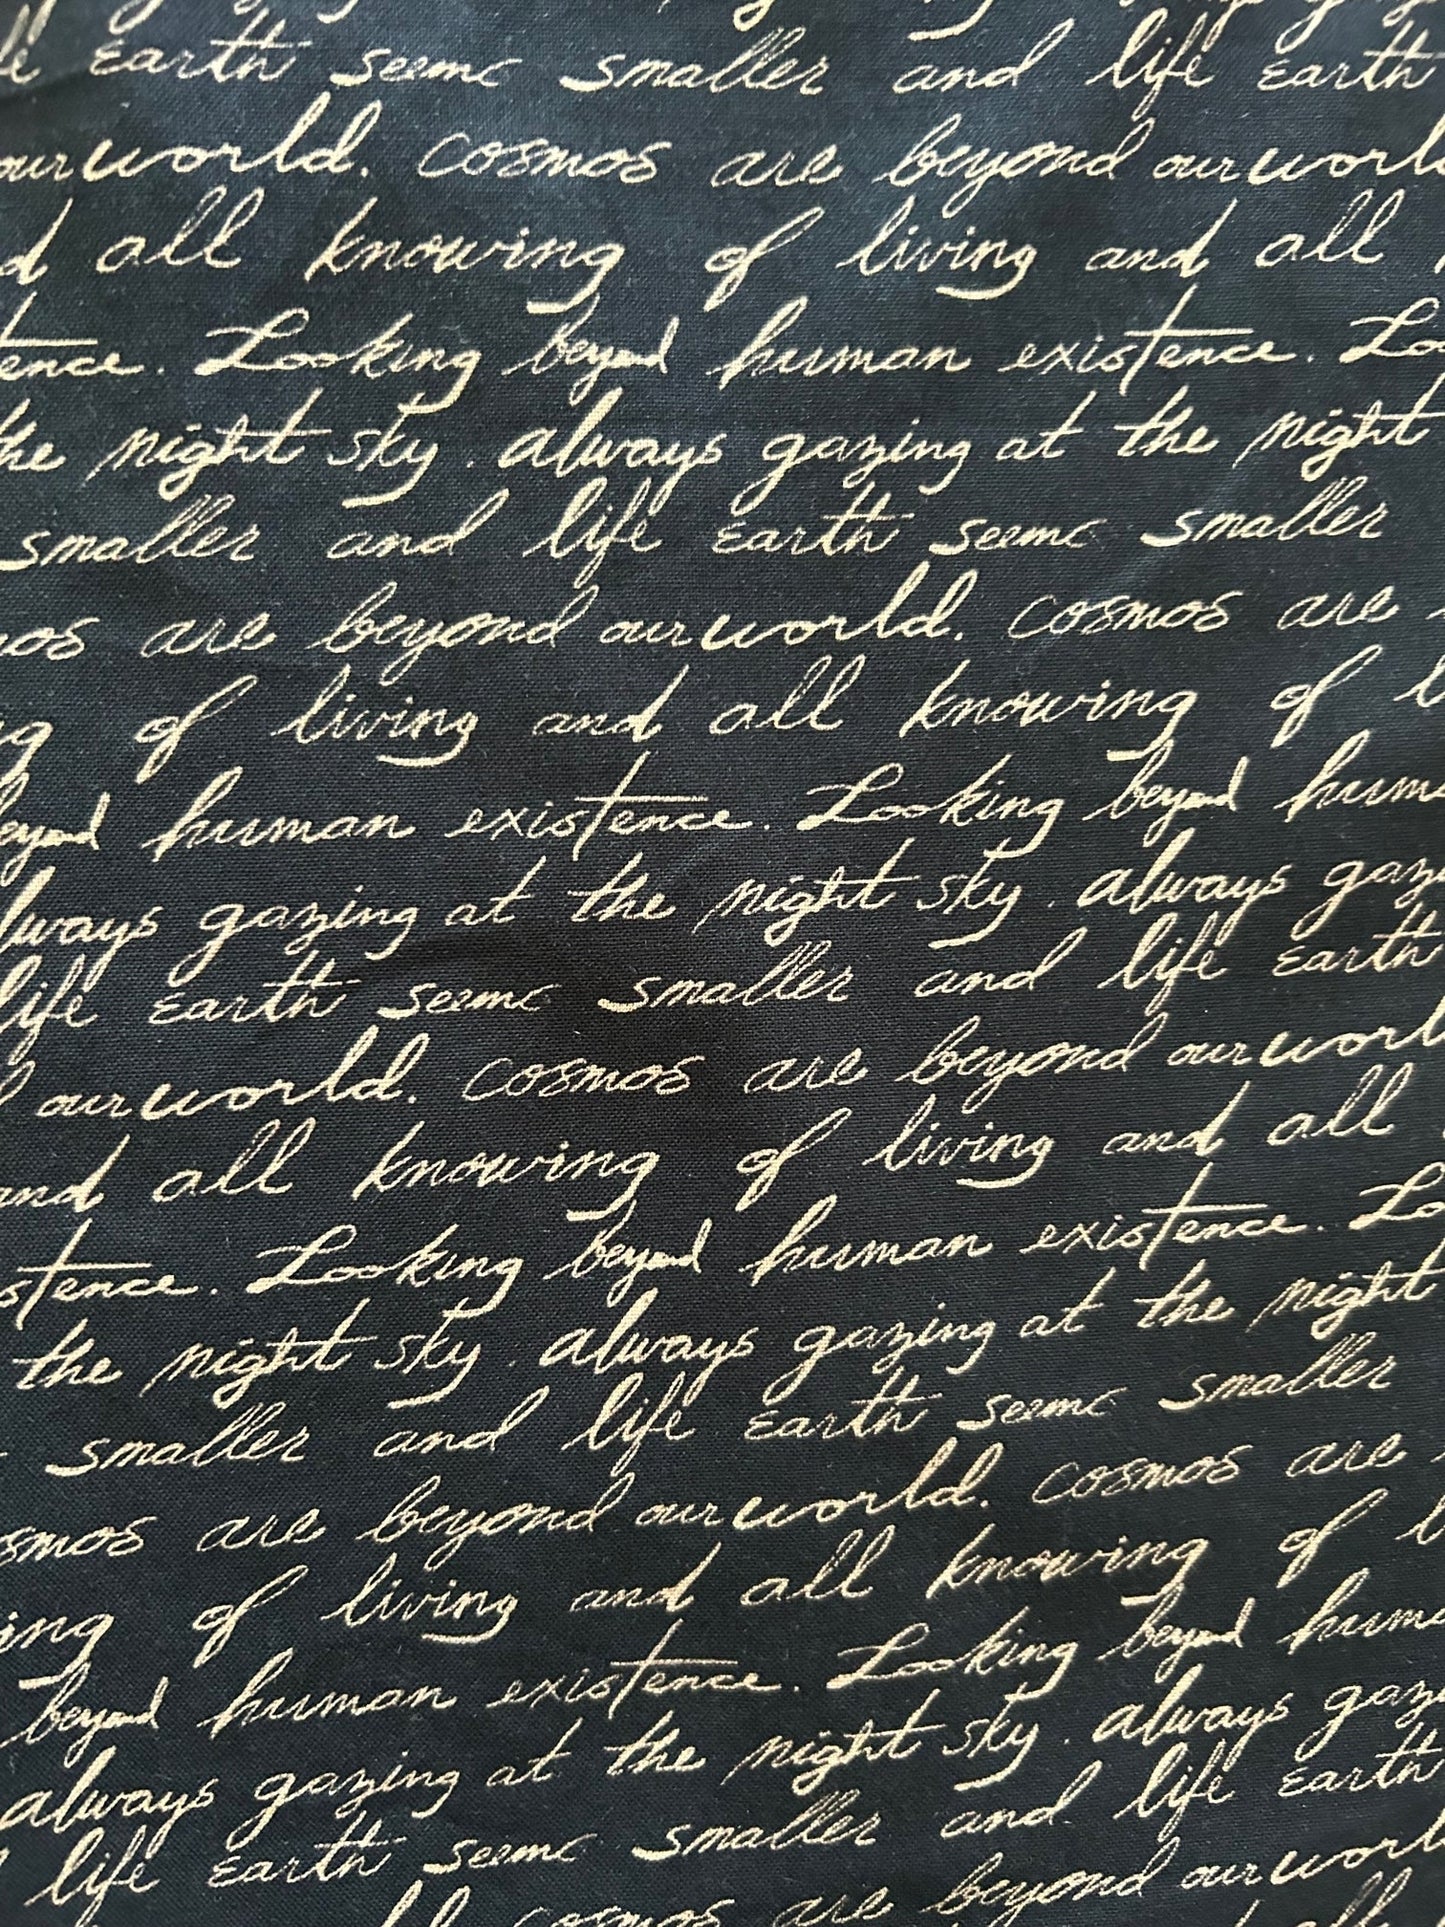 life earth seems smaller and life earth
our world. cosmos are beyond our world
and all knowing of living and all
tence. Looking beyond human existence. Loo
the night sky. always gazing at the night
smaller and life earth seems smaller
mos are beyond our world. cosmos are
ng of living and all knowing of l
beyond human existence. Looking beyond huma
always gazing at the night sky. always gazi
life earth seems smaller and life earth
our world. cosmos are beyond our world
and all knowing of living and all
stence. Looking beyond human existence. Lo
the night sky. always gazing at the night
smaller and life earth seems smaller
osmos are beyond our world. cosmos are
ing of living and all knowing of l
beyond human existence. Looking beyond huma
always gazing at the night sky. always gaz
life earth seems smaller and life earth
cosmos are beyond our world